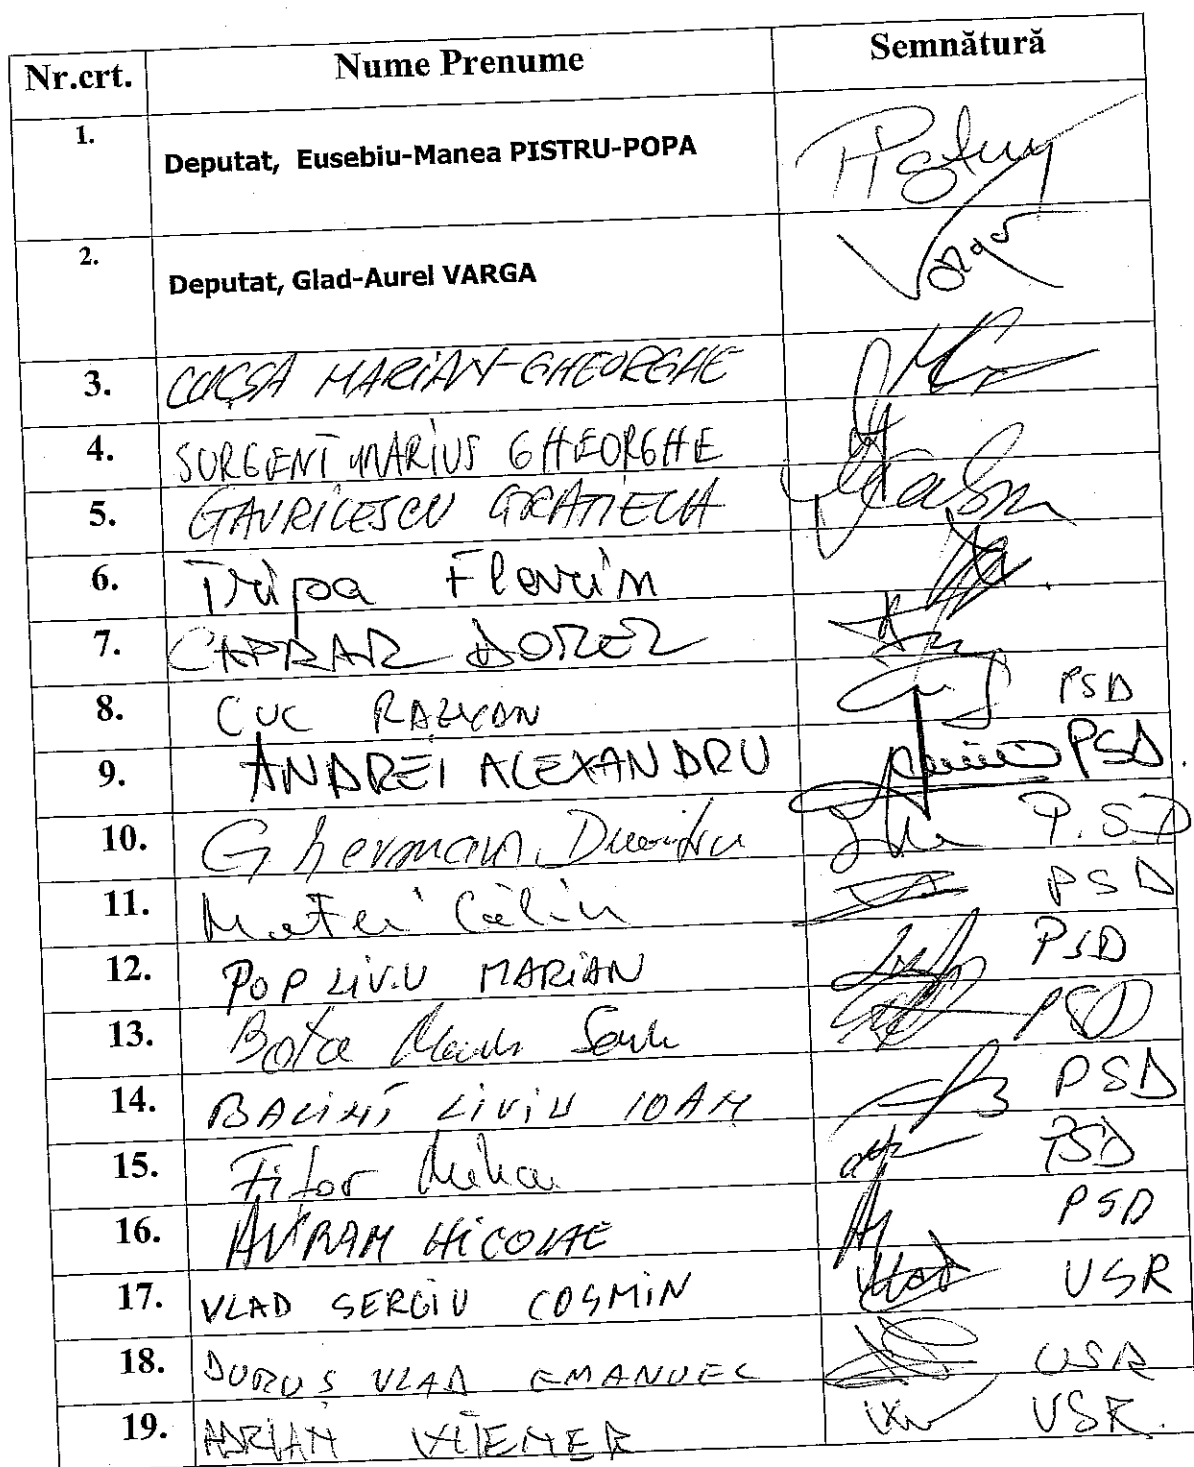 Nr.crt. Nume Prenume Semnătură
1. Deputat, Eusebiu-Manea PISTRU-POPA
2. Deputat, Glad-Aurel VARGA Varga
3. CUCȘA MARIAN-GHEORGHE
4. SURGENT MARIUS GHEORGHE
5. GAVRILESCU GRATIELA
6. Tripa Florin
7. CAPRAR DOREL
8. CUC RAZVAN PSD
9. ANDREI ALEXANDRU PSD.
10. Gherman Dumitru P.SD
11. Matei Călin PSD
12. POP LIVIU MARIAN PSD
13. Bota PSD
14. BALINT LIVIU IOAN PSD
15. Fifor Mihai PSD
16. AVRAM NICOLAE PSD
17. VLAD SERGIU COSMIN USR
18. DURUȘ VLAD EMANUEL USR
19. ADRIAN WIENER USR.